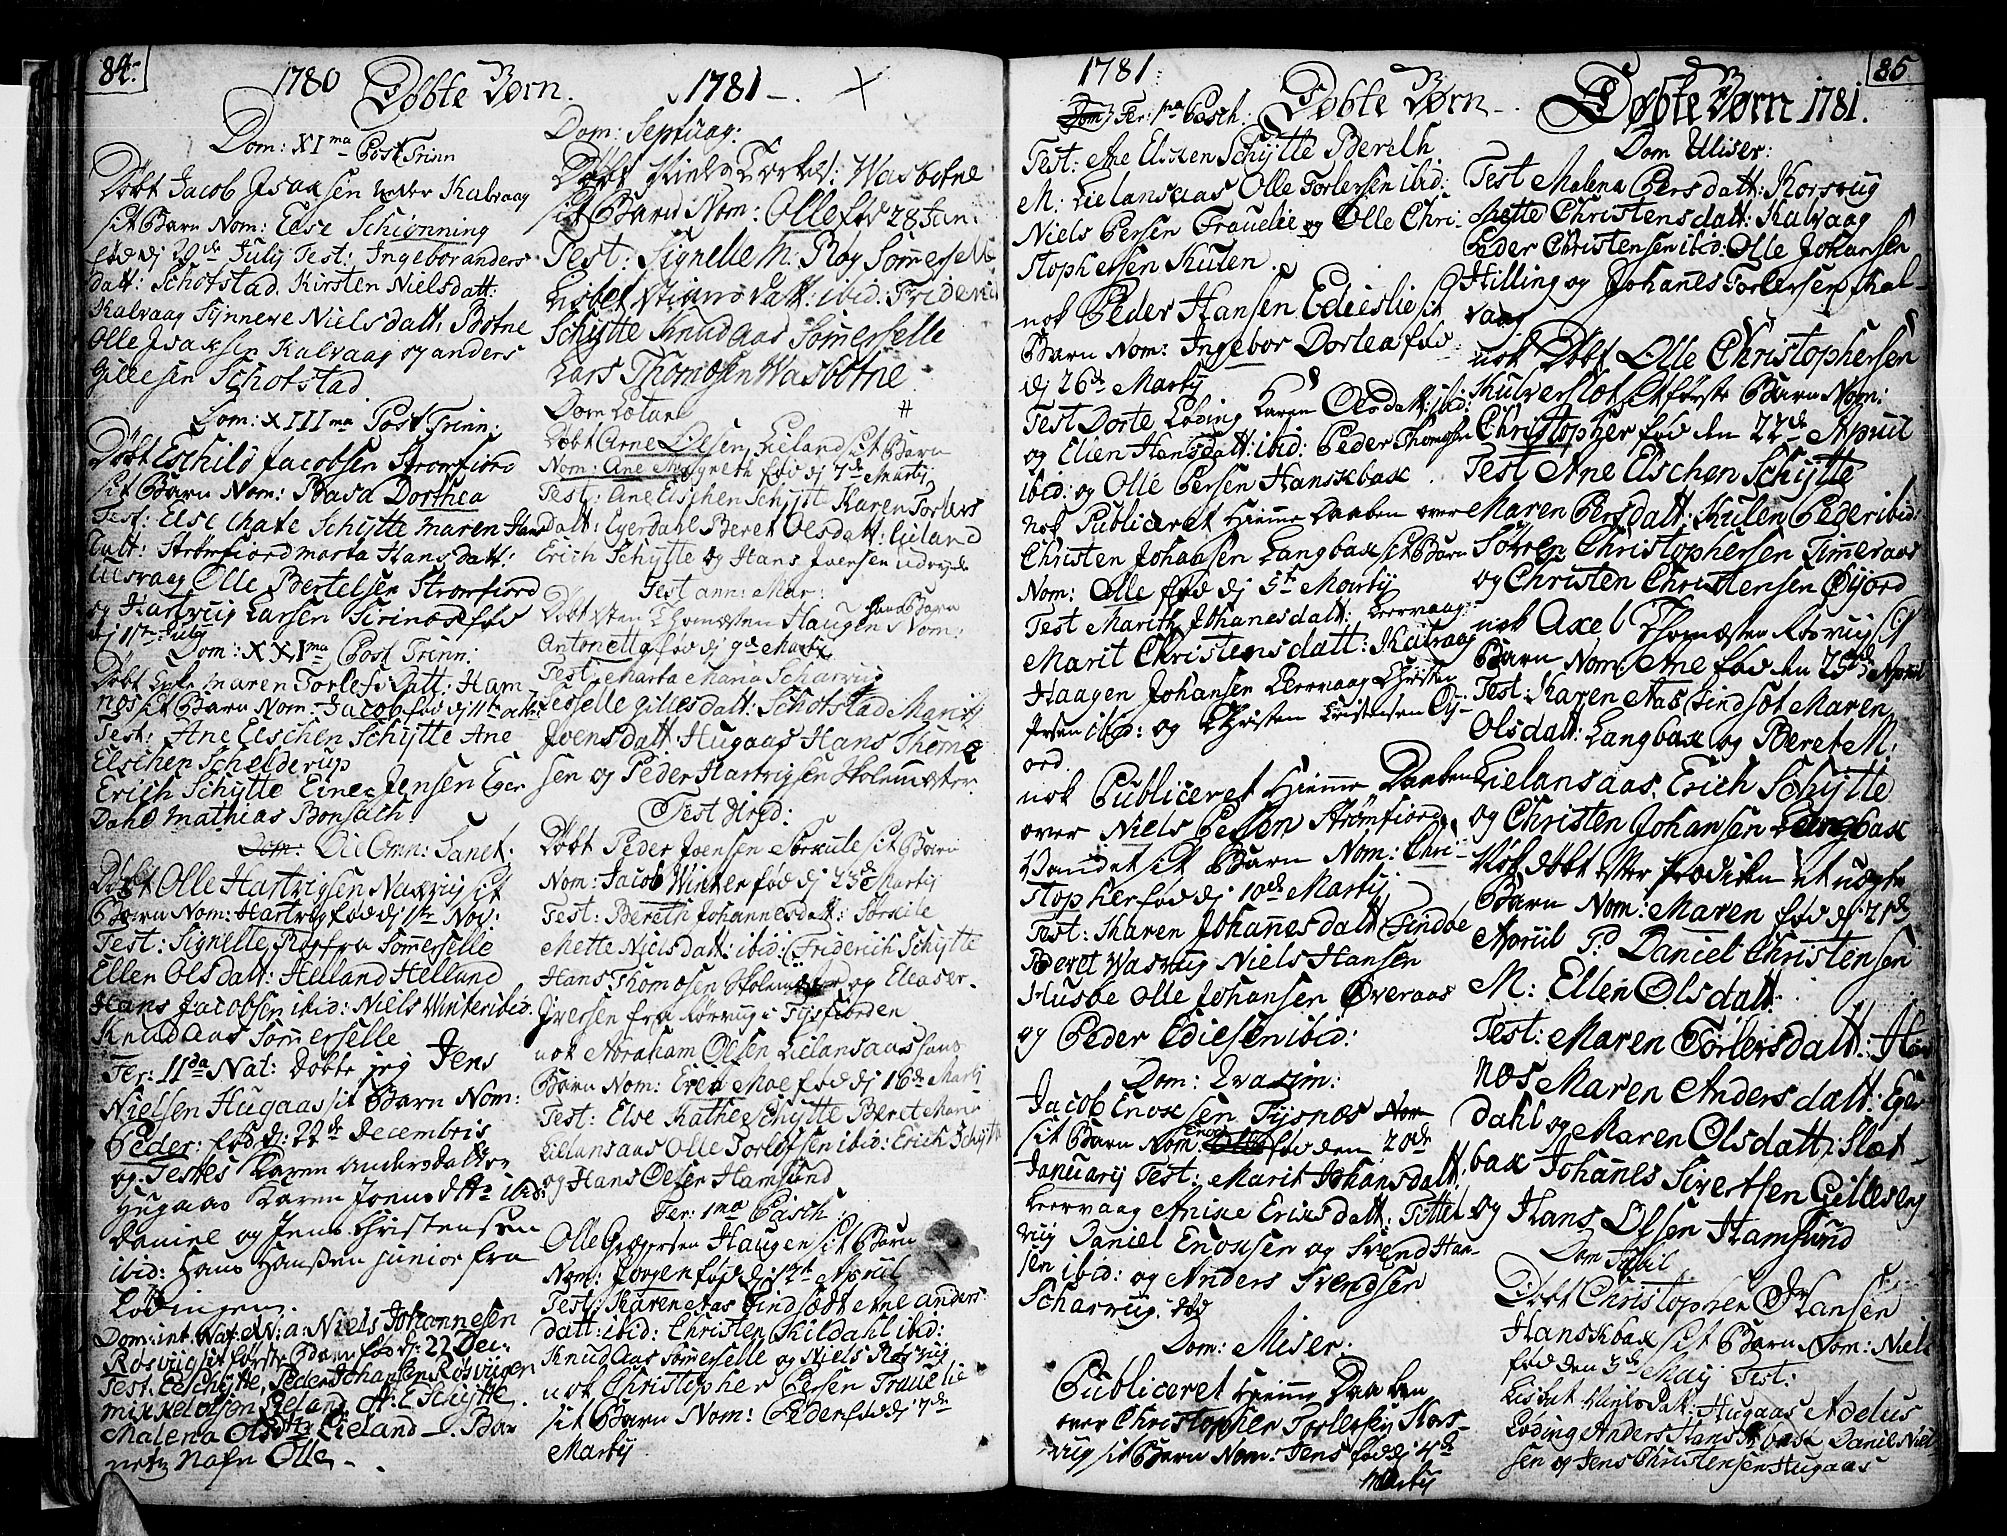 84.
1780 Døbte Børn.
Dom: XIma Post Trinn
Døbt Jacob Isaksen Kalvaag
sit Barn Nom: Else Schiønning
fød dj 29de July Test: Ingebor anders
datt: Schotstad. Kirsten Nielsdatt:
Kalvaag Synneve Nielsdatt: Botne
Olle Isaksen Kalvaag og anders
Gillesen Schotstad
Dom: XIIIma Post Trinn:
Døbt Eschild Jacobsen Strømfiord
sit Barn Nom: Basa Dorthea
Test: Else Chate Schytte maren Hans
datt: Strømfiord marta Hansdatt:
Ulsvaag Olle Bertelsen Strømfiord
og Hartvig Larsen fød
dj 1ste July
Dom: XXIma Post Trinn:
Døbt maren Torlefsdatt: Ham
nøs sit Barn Nom: Jacob fød dj 11te octb:
Test: Ane Elschen Schytte Ane
Elschen Schelderup
Erich Schytte Einer Jensen Eger
Dahl Mathias Bonsach
Die Omn: Sanct:
Døbt Olle Hartvigsen Naxvig sit
Barn Nom: Hartvig fød dj 1ste Nov:
Test: Signelle Røy fra Sømmerselle
Ellen Olsdatt: Helland Helland
Hans Jacobsen ibid: Niels Winter ibid:
Knud Aas Sømmerselle
Fer: IIda Nat: Døbte jeg Jens
Nielsen Hugaas sit Barn Nom:
Peder: fød dj: 22de Decembris
og Testes Karen Andersdatter
Hugaas Karen Joensdtr ibid:
Daniel og Jens Christensen
ibid: Hans Hansen junior fra
Lødingen.
Dom: int. Nat. & N: a: Niels Johannesen
Røsviig sit første Barn fød dj: 22 Dec:
Test. E. Schytte, Peder Johansen Røsviigen
Mikkel Olsen Lieland A: E Schytte.
Malena Olsdtr Lieland. Bar
nets Nafn Olle.
1781
Dom: Septuag:
Døbt Niels Torkels: Wasbotne
sit Barn Nom: Olle fød 28 Jan:
Test: Signelle M: Røy Sømmerselle
Lisbet ibid: Frideric
Schytte Knud Aas Sømmerselle
Lars Thomøsen Wasbotne
Dom Lætare
Døbt Arne Olsen Lieland sit Barn
Nom: Ane Margreth fød dj 7de Martij
Test: Ane Elschen Schytte Karen Torlers
datt: Egerdahl Beret Olsdatt: Lieland
Erich Schytte og Hans Joensen
Fest ann: Mar:
Døbt Sten Thomøsen Haugen hans Barn Nom:
Antonetta fød dj 9de Martij
Test: Marta Maria Scharvig
Sesselle Gillesdatt: Schotstad Marit
Joensdatt: Hugaas Hans Thomø
sen og Peder Hartvigsen Skolemester
Fest Virid:
Døbt Peder Joensen Sørkule sit Barn
Nom: Jacob Winter fød dj 23de Martij
Test: Bereth Johannesdatt: Sørkule
Mette Nielsdatt: ibid: Friderich Schytte
Hans Thomøsen Skolemester og Eleaser
Iversen fra Kørvig i Tysfiorden
nok Abraham Olsen Lielansaas hans
Barn Nom: Erik Moe fød dj 16de Martij
Test: Else Kathe Schytte Beret Maria
Lielansaas Olle Torlefsen ibid: Erich Schytte
og Hans Olsen Hamsund
Fer: 1ma Pasch:
Olle Gregersen Haugen sit Barn
Nom: Jørgen fød dj 12te Apriil
Test: Karen Aas Findsæt Ane anders
datt: ibid: Christen Kildahl ibid:
Knud Aas Sømmerselle og Niels Røsvig
nok Christopher Persen Trauelie
sit Barn Nom: Peder fød dj 7de
Martij
1781: Døbte Børn
Fer: 1ma Pasch:
Test: Ane Elschen Schytte Bereth
M: Lielansaas Olle Torlersen ibid:
Niels Persen Trauelie og Olle Chri
stophersen Kulen.
nok Peder Hansen Edieslie sit
Barn Nom: Ingebor Dortea fød
dj 26de Martij
Test Dorte Løding Karen Olsdatt: ibid:
og Elien Hansdatt: ibid: Peder Thomøsen
ibid: og Olle Persen Hanskbax.
nok Publiceret Hieme Daaben over
Christen Johansen Langbax sit Barn
Nom: Olle fød dj 5te Martij
Test Marith Johanesdatt: Leervaag
Marit Christensdatt: Kalvaag
Haagen Johansen Leervaag Christen
Persen ibid: og Christen Cristensen Øj-
ord
nok Publiceret Hieme Daaben
over Niels Persen Strømfiord
Vandet sit Barn Nom: Chri-
stopher fød dj 10de Martij
Test: Karen Johanesdatt Findøe
Beret Wasvig Niels Hansen
Husbe Olle Johansen Øveraas
og Peder Ediesen ibid:
Dom: Qvasim:
Jacob Enoxsen Tysnøs Nor
sit Barn Nom: Enox fød den 20de
Januarij Test: Marit Johansdatt:
Leervaag Anixe Erixsdatt: Tittel
viig Daniel Enoxsen og Svend Han-
sen ibid: og Anders Svendsen
Scharvig.
Dom: Miser:
Publiceret Hieme Daaben
over Christopher Torlersen Kors-
viig sit Barn Nom: Jens fød dj 4de
Martij
85
Døbte Børn 1781.
Dom Miser:
Test Malena Persdatt: Korsviig
Mette Christensdatt: Kalvaag
Peder Christensen ibid: Olle Johansen
Hilling og Johanes Torlersen Kal-
vaag
nok Døbt Olle Christophersen
Kulverslot sit første Barn Nom:
Christopher fød den 22de Apriil
Test Ane Elschen Schytte
Maren Persdatt: Kulen Peder ibid:
Søfren Christophersen Timeraas
og Christen Christensen Øyjord
nok Axel Thomøsen Rosviig sit
Barn Nom: Ane fød den 25de Apriil
Test: Karen Aas Findsæt Maren
Olsdatt: Langbax og Beret M:
Lielansaas, Erich Schytte
og Christen Johansen Langbax
Nok døbt efter Prædiken et uægte
Barn Nom: Maren fød dj 21de
Apriil P: Daniel Christensen
M: Ellen Olsdatt:
Test: Maren Torlersdatt: Ham
nøs Maren Andersdatt: Eger
dahl og Maren Olsdatt: Slet
bax Johanes Sivertsen Gillesvig
og Hans Olsen Hamsund
Dom Jubil
Døbt Christopher Hansen
Hanskbax sit Barn Nom: Niels
fød den 3de Maij Test:
Lisbet Nielsdatt: Hugaas Adelus
Løding Anders Hans Kbax Daniel Niel
sen og Jens Christensen Hugaas